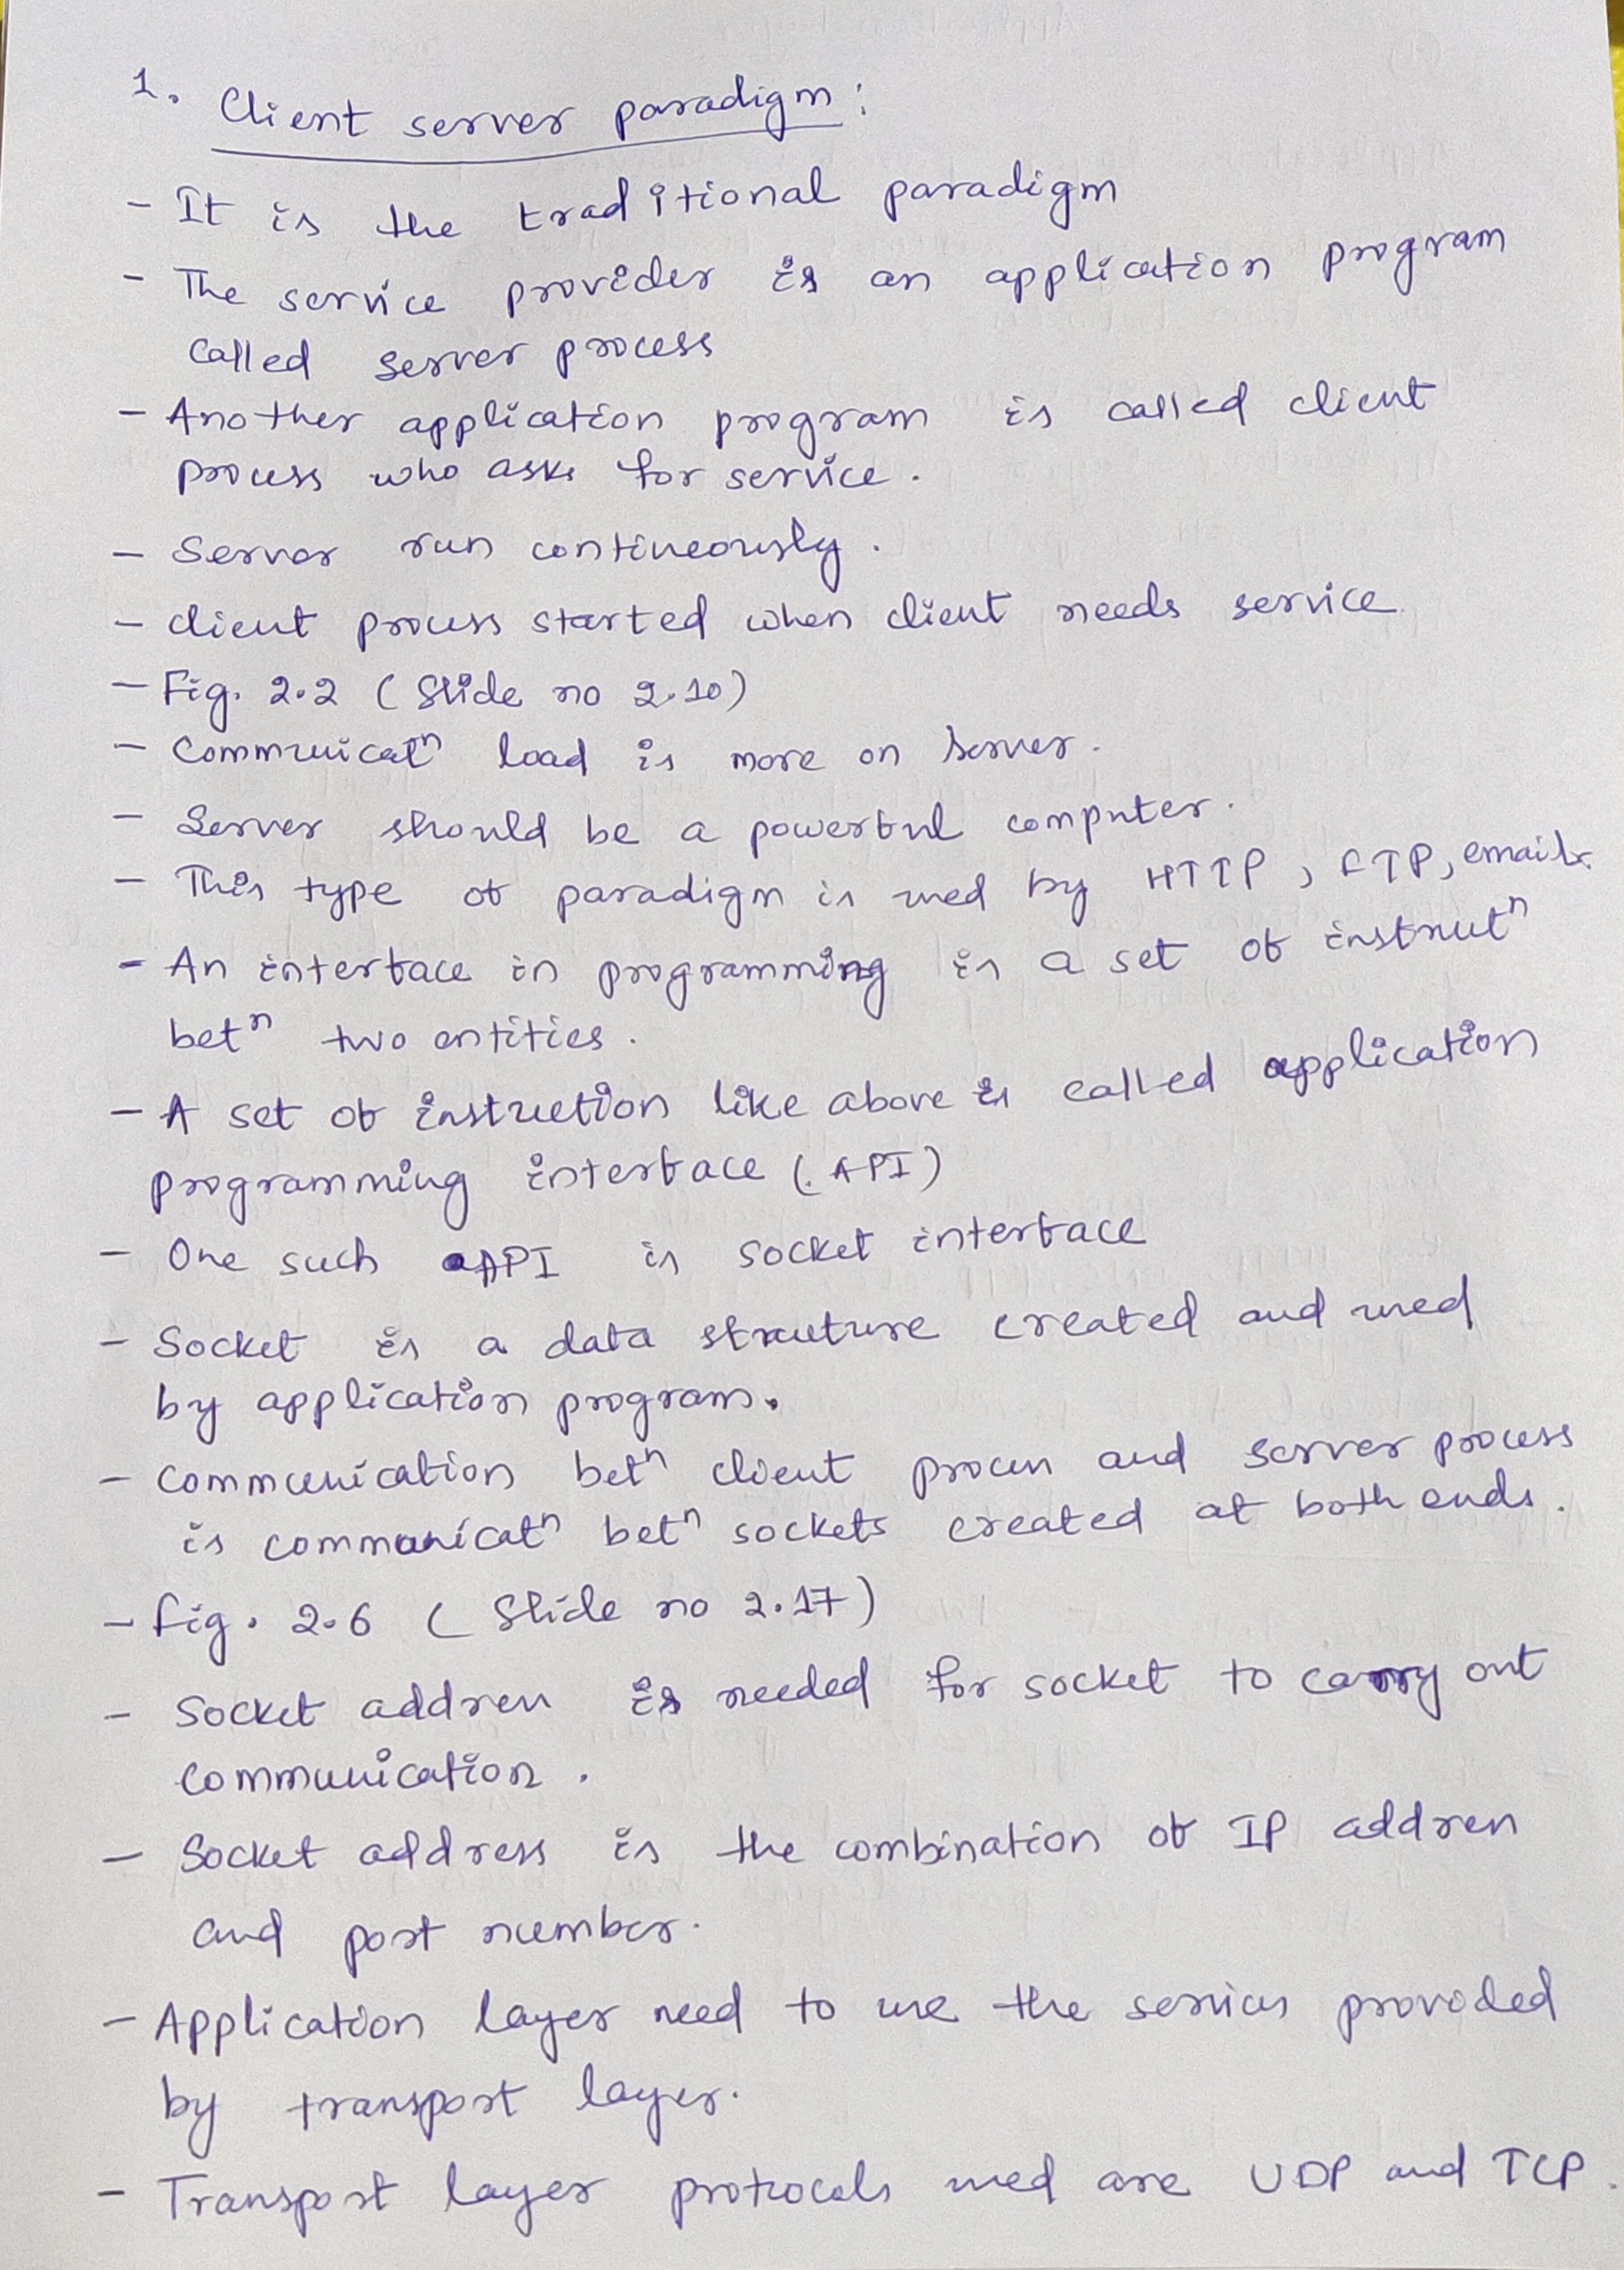 1. Client server paradigm :
- It is the traditional paradigm
- The service provider is an application program
called server process
- Another application program is called client
process who asks for service.
- Server run contineously.
- client process started when client needs service
- Fig. 2.2 ( Slide no 2.10)
- Communicatⁿ load is more on server.
- Server should be a powerful computer.
- This type of paradigm is used by HTTP, FTP, email
- An interface in programming is a set of instrutⁿ
betⁿ two entities.
- A set of instruction like above is called application
programming interface (API)
- One such API is socket interface
- Socket is a data struture created and used
by application program.
- Communication betⁿ client process and server process
is communicatⁿ betⁿ sockets created at both ends.
- fig. 2.6 ( Slide no 2.17)
- Socket address is needed for socket to carry out
communication.
- Socket address is the combination of IP address
and port number.
- Application layer need to use the services provided
by transport layer.
- Transport layer protocols used are UDP and TCP.